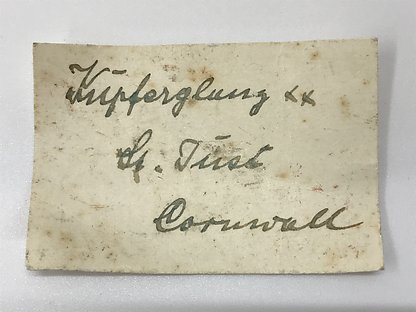 Kupferglanz xx
St. Just
Cornwall